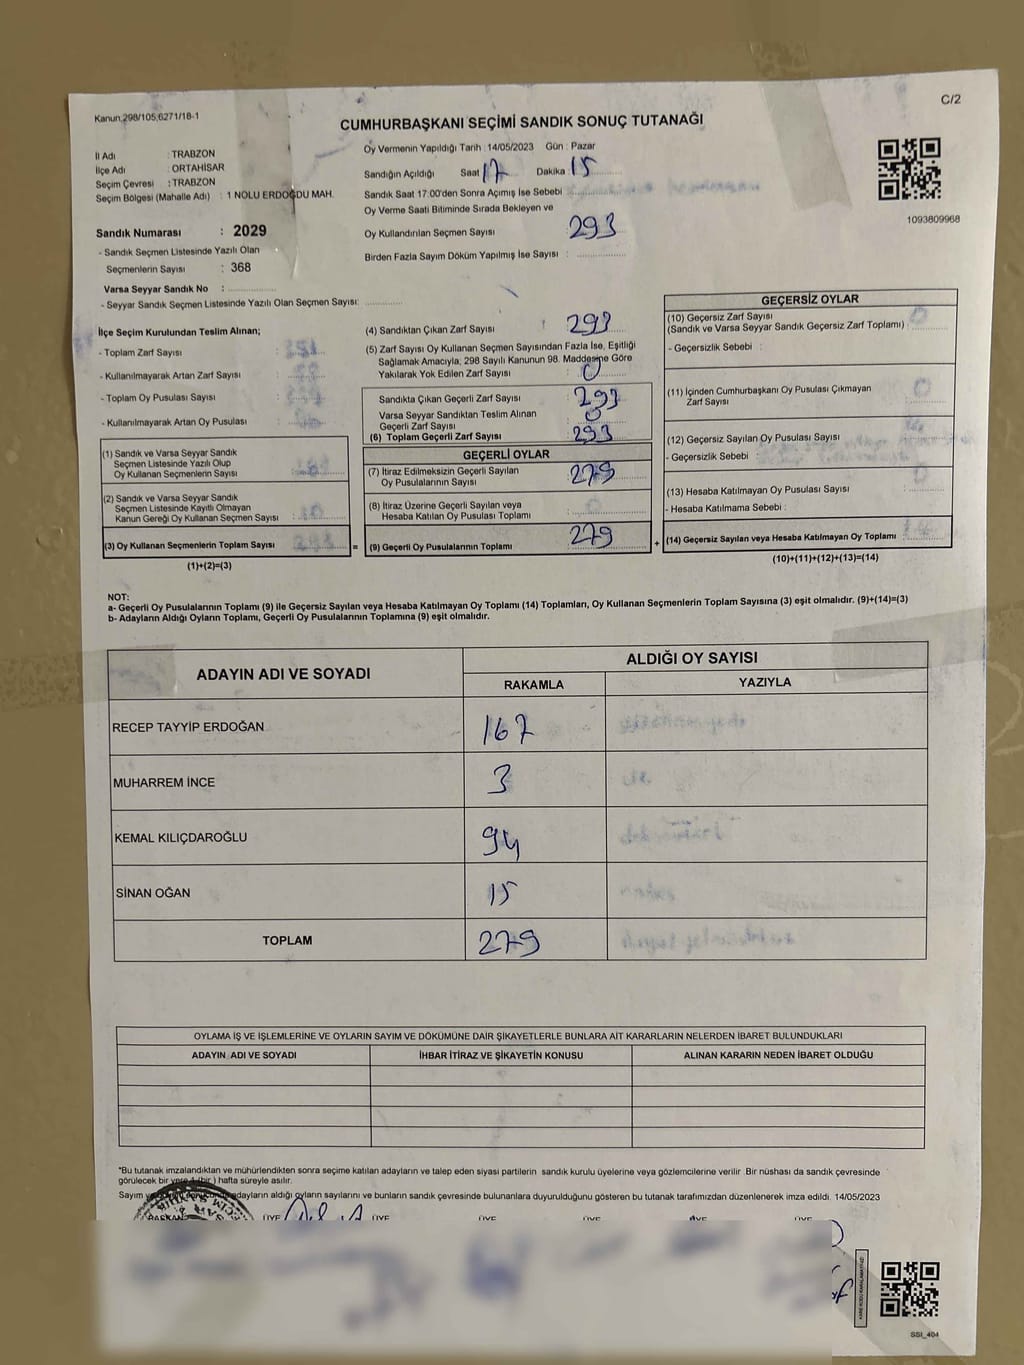 Kanun:298/105,6271/18-1
C/2
CUMHURBAŞKANI SEÇİMİ SANDIK SONUÇ TUTANAĞI
İl Adı : TRABZON
İlçe Adı : ORTAHİSAR
Seçim Çevresi : TRABZON
Seçim Bölgesi (Mahalle Adı) : 1 NOLU ERDOĞDU MAH.
Sandık Numarası : 2029
- Sandık Seçmen Listesinde Yazılı Olan
Seçmenlerin Sayısı : 368
Varsa Seyyar Sandık No :
- Seyyar Sandık Seçmen Listesinde Yazılı Olan Seçmen Sayısı:
Oy Vermenin Yapıldığı Tarih :14/05/2023 Gün : Pazar
Sandığın Açıldığı Saat 17 Dakika 15
Sandık Saat 17:00'den Sonra Açımış İse Sebebi
Oy Verme Saati Bitiminde Sırada Bekleyen ve
Oy Kullandırılan Seçmen Sayısı 293
Birden Fazla Sayım Döküm Yapılmış İse Sayısı :
1093809968
İlçe Seçim Kurulundan Teslim Alınan;
- Toplam Zarf Sayısı :
- Kullanılmayarak Artan Zarf Sayısı :
- Toplam Oy Pusulası Sayısı :
- Kullanılmayarak Artan Oy Pusulası :
(1) Sandık ve Varsa Seyyar Sandık
Seçmen Listesinde Yazılı Olup
Oy Kullanan Seçmenlerin Sayısı
(2) Sandık ve Varsa Seyyar Sandık
Seçmen Listesinde Kayıtlı Olmayan
Kanun Gereği Oy Kullanan Seçmen Sayısı
(3) Oy Kullanan Seçmenlerin Toplam Sayısı 293 =
(1)+(2)=(3)
(4) Sandıktan Çıkan Zarf Sayısı : 293
(5) Zarf Sayısı Oy Kullanan Seçmen Sayısından Fazla İse, Eşitliği
Sağlamak Amacıyla, 298 Sayılı Kanunun 98. Maddesine Göre
Yakılarak Yok Edilen Zarf Sayısı : 0
Sandıkta Çıkan Geçerli Zarf Sayısı 293
Varsa Seyyar Sandıktan Teslim Alınan
Geçerli Zarf Sayısı 0
(6) Toplam Geçerli Zarf Sayısı 293
GEÇERLİ OYLAR
(7) İtiraz Edilmeksizin Geçerli Sayılan
Oy Pusulalarının Sayısı 279
(8) İtiraz Üzerine Geçerli Sayılan veya
Hesaba Katılan Oy Pusulası Toplamı 0
(9) Geçerli Oy Pusulalarının Toplamı 279 +
GEÇERSİZ OYLAR
(10) Geçersiz Zarf Sayısı
(Sandık ve Varsa Seyyar Sandık Geçersiz Zarf Toplamı) : 0
- Geçersizlik Sebebi :
(11) İçinden Cumhurbaşkanı Oy Pusulası Çıkmayan
Zarf Sayısı : 0
(12) Geçersiz Sayılan Oy Pusulası Sayısı
- Geçersizlik Sebebi :
(13) Hesaba Katılmayan Oy Pusulası Sayısı : 0
- Hesaba Katılmama Sebebi :
(14) Geçersiz Sayılan veya Hesaba Katılmayan Oy Toplamı 14
(10)+(11)+(12)+(13)=(14)
NOT:
a- Geçerli Oy Pusulalarının Toplamı (9) ile Geçersiz Sayılan veya Hesaba Katılmayan Oy Toplamı (14) Toplamları, Oy Kullanan Seçmenlerin Toplam Sayısına (3) eşit olmalıdır. (9)+(14)=(3)
b- Adayların Aldığı Oyların Toplamı, Geçerli Oy Pusulalarının Toplamına (9) eşit olmalıdır.
ADAYIN ADI VE SOYADI
ALDIĞI OY SAYISI
RAKAMLA YAZIYLA
RECEP TAYYİP ERDOĞAN 167
MUHARREM İNCE 3
KEMAL KILIÇDAROĞLU 94
SİNAN OĞAN 15
TOPLAM 279
OYLAMA İŞ VE İŞLEMLERİNE VE OYLARIN SAYIM VE DÖKÜMÜNE DAİR ŞİKAYETLERLE BUNLARA AİT KARARLARIN NELERDEN İBARET BULUNDUKLARI
ADAYIN ADI VE SOYADI İHBAR İTİRAZ VE ŞİKAYETİN KONUSU ALINAN KARARIN NEDEN İBARET OLDUĞU
*Bu tutanak imzalandıktan ve mühürlendikten sonra seçime katılan adayların ve talep eden siyasi partilerin sandık kurulu üyelerine veya gözlemcilerine verilir. Bir nüshası da sandık çevresinde
görülecek bir yere 1 (bir) hafta süreyle asılır.
adayların aldığı oyların sayılarını ve bunların sandık çevresinde bulunanlara duyurulduğunu gösteren bu tutanak tarafımızdan düzenlenerek imza edildi. 14/05/2023
BAŞKAN ÜYE ÜYE ÜYE ÜYE ÜYE ÜYE
SSI_404